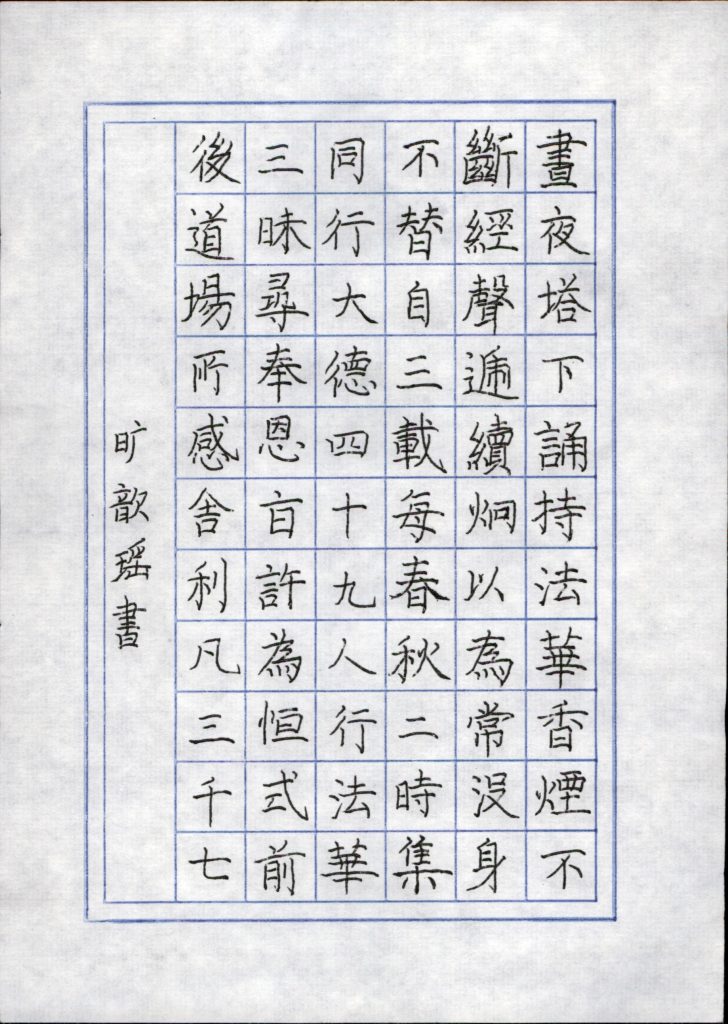 晝夜塔下誦持法華香煙不
斷經聲遞續炯以為常没身
不替自三載每春秋二時集
同行大德四十九人行法華
三昧尋奉恩旨許為恒式前
後道場所感舍利凡三千七
旷歆瑶書